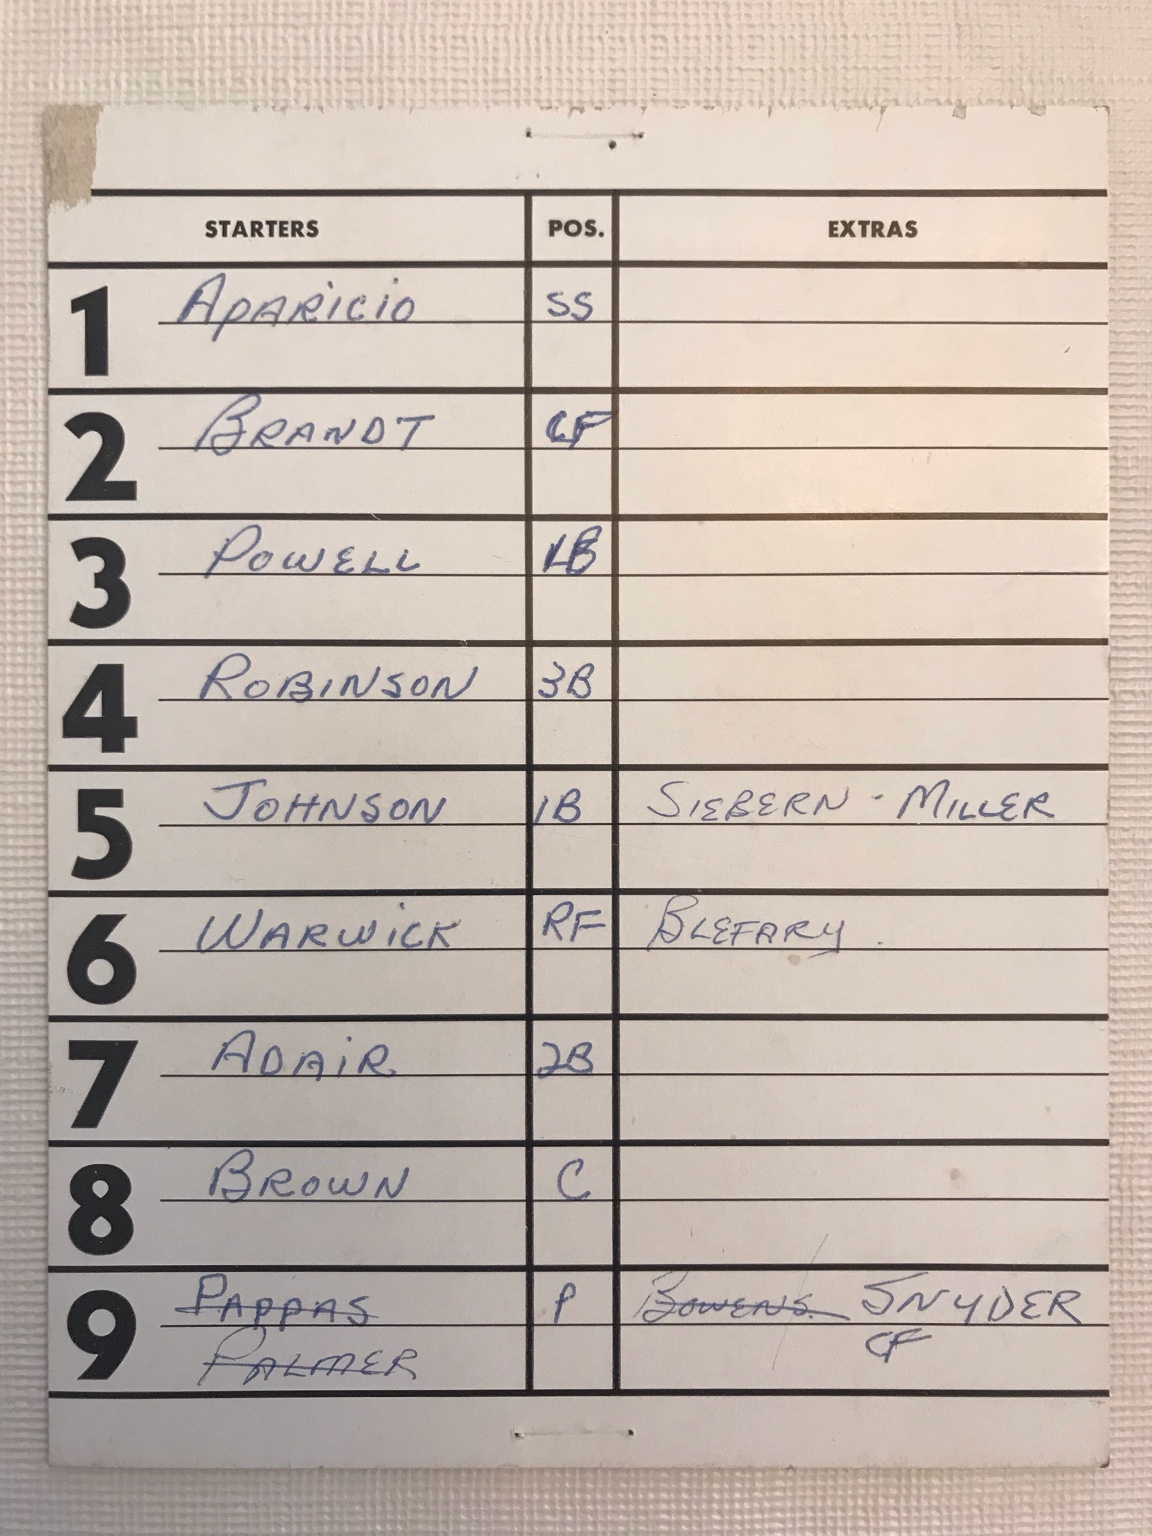 STARTERS POS. EXTRAS
1 APARICIO SS
2 BRANDT CF
3 POWELL 1B
4 ROBINSON 3B
5 JOHNSON 1B SIEBERN - MILLER
6 WARWICK RF BLEFARY.
7 ADAIR 2B
8 BROWN C
9 PAPPAS P BOWENS SNYDER
PALMER CF